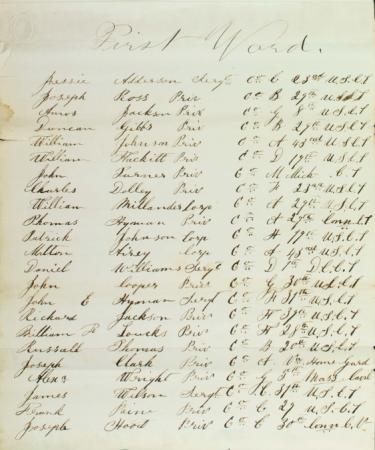 First Ward.
Jessie Adderson Sergt Co C 23rd U.S.C.T
Joseph Ross Priv Co B 29th U.S.C.T
Amos Jackson Priv Co G 8th U.S.C.T
Duncan Gibbs Priv Co B 29th U.S.C.T
William Johnson Priv Co A 43rd U.S.C.T
William Hackitt Priv Co D 19th U.S.C.T
John Turner Priv Co M Mich C.T
Charles Dolley Priv Co H 23rd U.S.C.T
William Millander Corp Co A 29th U.S.C.T
Thomas Hyman Priv Co A 29th Conn C.T
Patrick Johnson Corp Co H 19th U.S.C.T
Milton Airey Corp Co A 43rd U.S.C.T
Daniel Williams Sergt Co D 1st D.C.C.T
John Cooper Priv Co G 30th U.S.C.T
John E Hyman Sergt Co F 37th U.S.C.T
Richard Jackson Priv Co F 31st U.S.C.T
William R Loucks Priv Co H 2 U.S.C.T
Russall Thomas Priv Co B 20th U.S.C.T
Joseph Clark Priv Co A Va Home Gard
Alexr Wright Priv Co G 5th Mass Cav
James Wilson Sergt Co C 31st U.S.C.T
Frank Paine Priv Co C 27 U.S.C.T
Joseph Hood Priv Co C 30th Conn C.V.